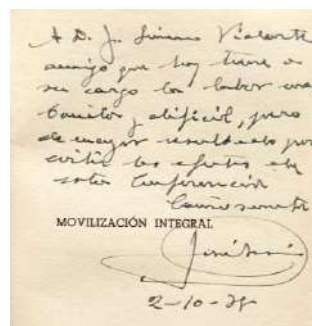 A D. J. Vicente
amigo que hoy tiene a
su cargo la labor más
bonita y difícil, pero
de mayor resultado por
los efectos de
esta Conferencia
Cariñosamente
MOVILIZACIÓN INTEGRAL
José
2-10-38